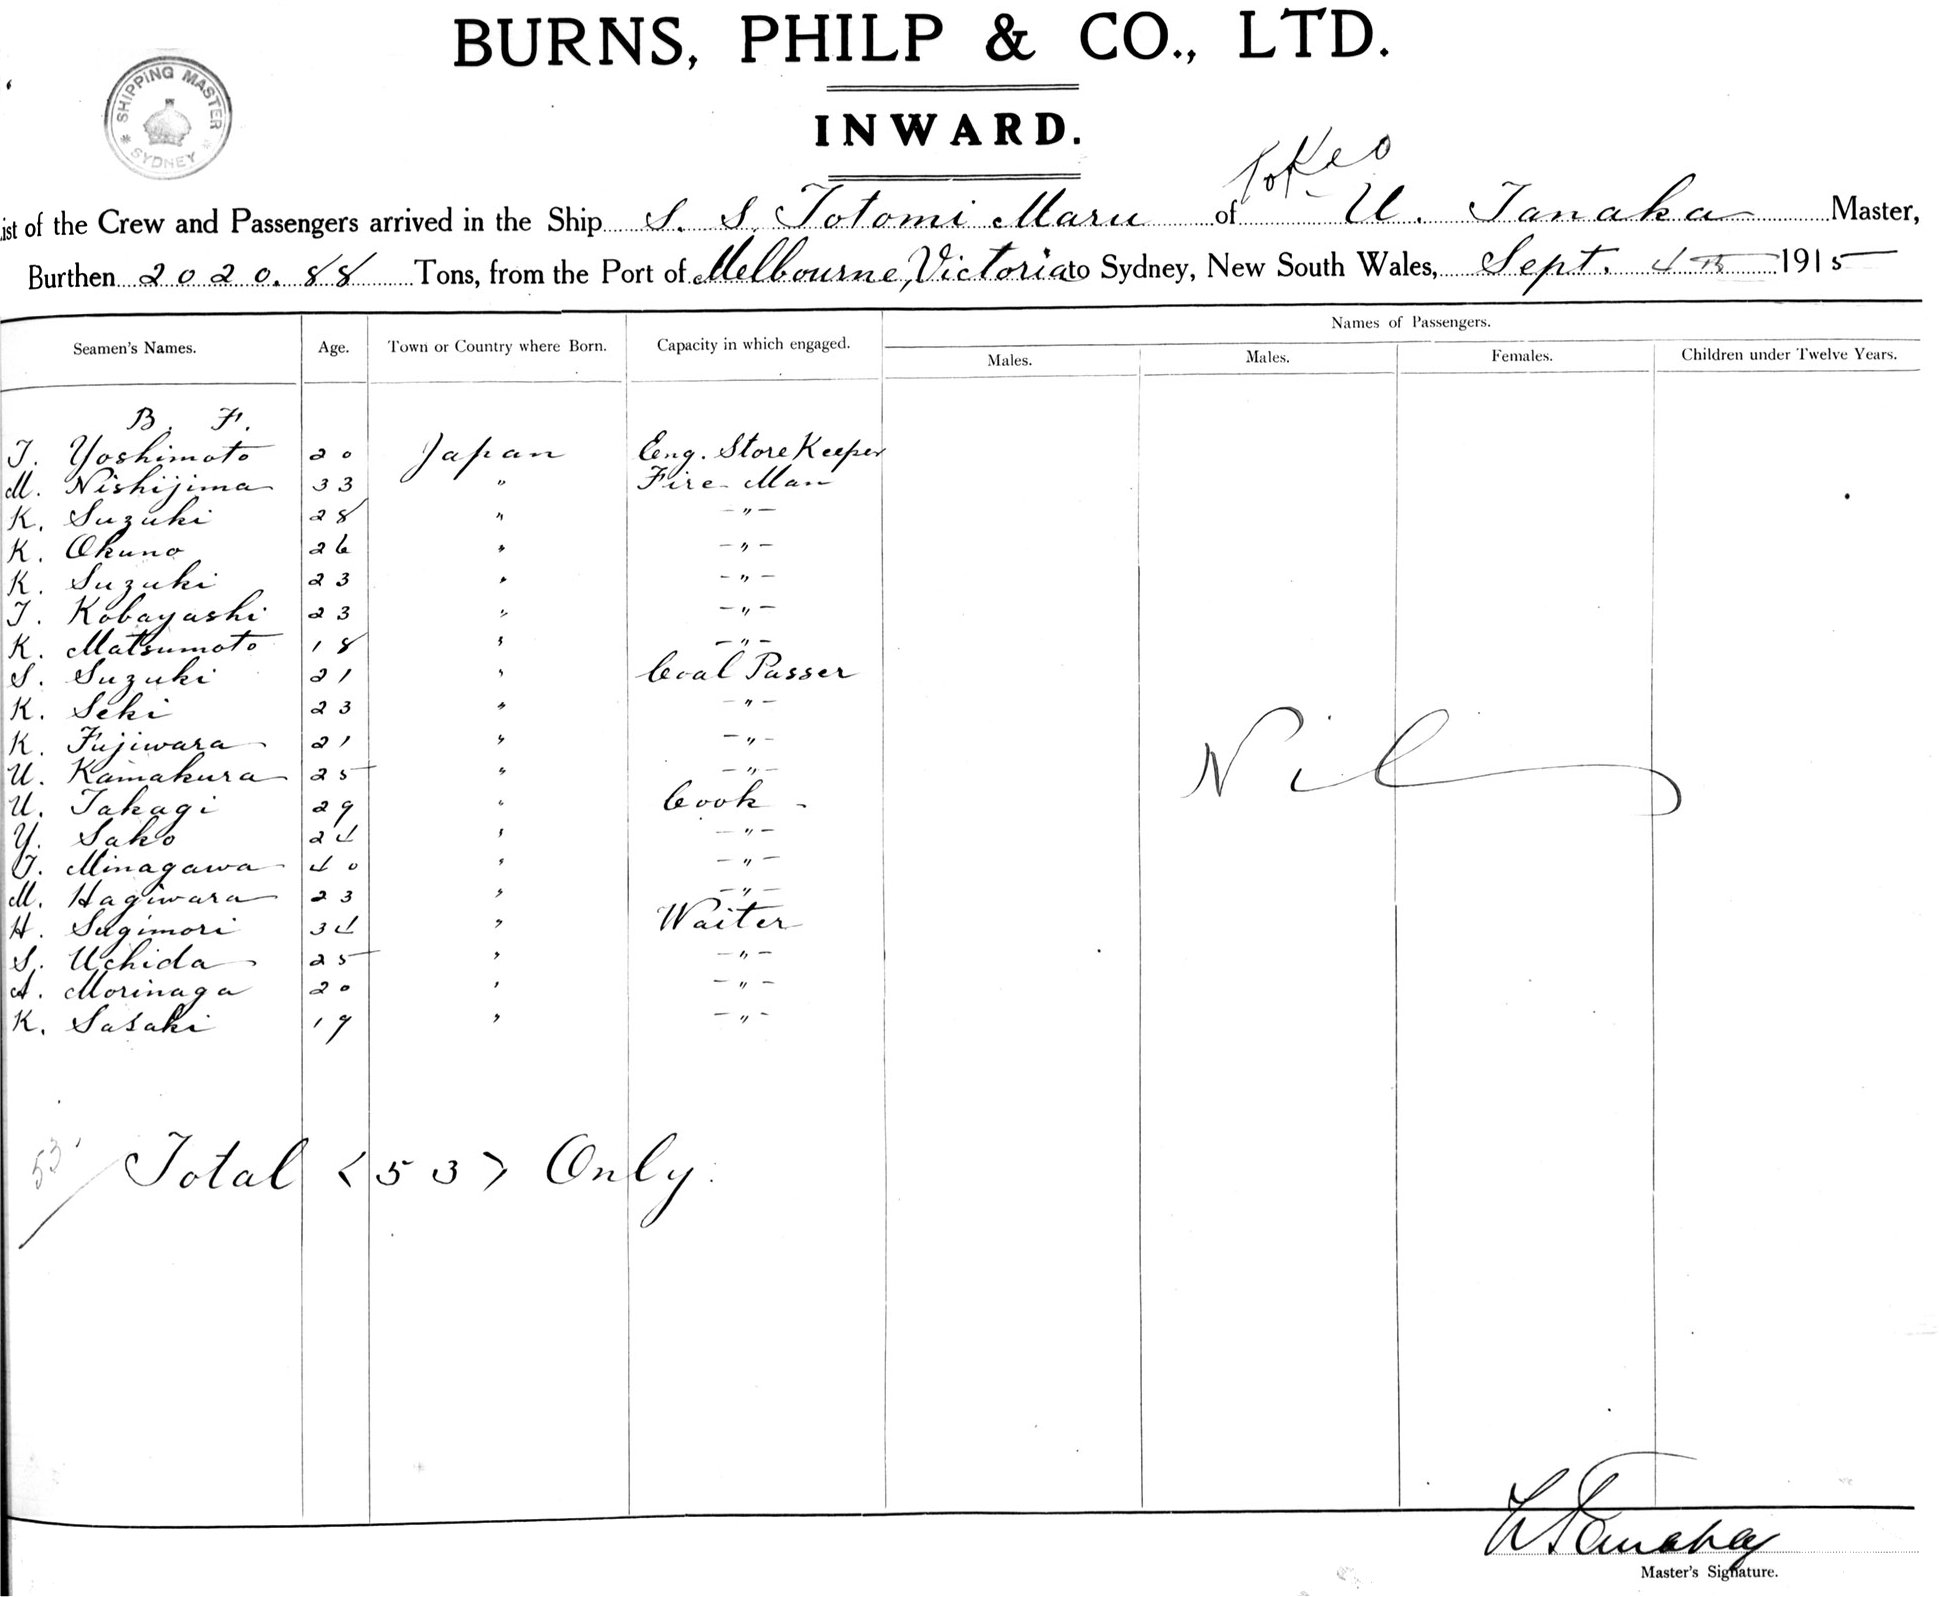 BURNS, PHILP & CO., LTD.
SHIPPING MASTER
SYDNEY
INWARD.
Tokeo
ist of the Crew and Passengers arrived in the Ship S. S. Totomi Maru of U. Tanaka Master,
Burthen 2020.88 Tons, from the Port of Melbourne, Victoria to Sydney, New South Wales, Sept. 4th 1915
Names of Passengers.
Seamen's Names. Age. Town or Country where Born. Capacity in which engaged. Males. Males. Females. Children under Twelve Years.
B. F.
T. Yoshimoto 20 Japan Eng. Store Keeper
M. Nishijima 33 " Fire Man
K. Suzuki 28 " -"-
K. Okuno 26 " -"-
K. Suzuki 23 " -"-
T. Kobayashi 23 " -"-
K. Matsumoto 18 " -"-
S. Suzuki 21 " Coal Passer
K. Seki 23 " -"-
K. Fujiwara 21 " -"-
U. Kamakura 25 " -"-
U. Takagi 29 " Cook -
Y. Sako 24 " -"-
T. Minagawa 40 " -"-
M. Hagiwara 23 " -"-
H. Sugimori 34 " Waiter
S. Uchida 25 " -"-
A. Morinaga 20 " -"-
K. Sasaki 19 " -"-
Nil
53
Total <53> Only.
U Tanaka
Master's Signature.